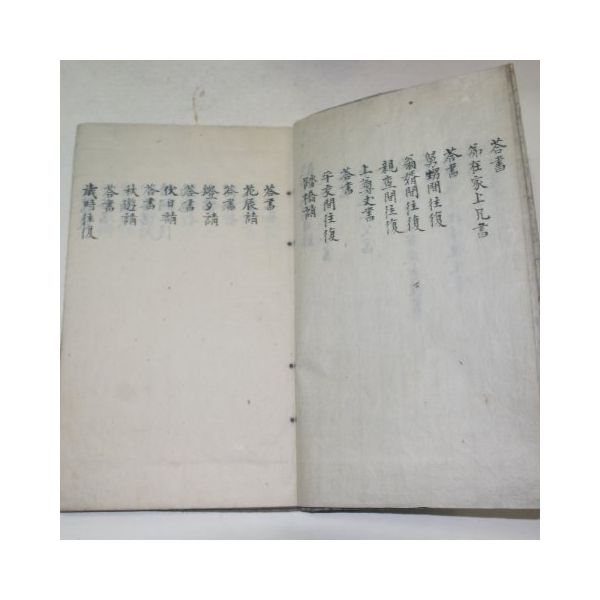 答書
弟在家上兄書
答書
舅甥間往復
翁婿間往復
親查間往復
上尊丈書
答書
平交間往復
踏橋請
答書
花辰請
答書
燈夕請
答書
伏日請
答書
秋遊請
答書
歲時往復